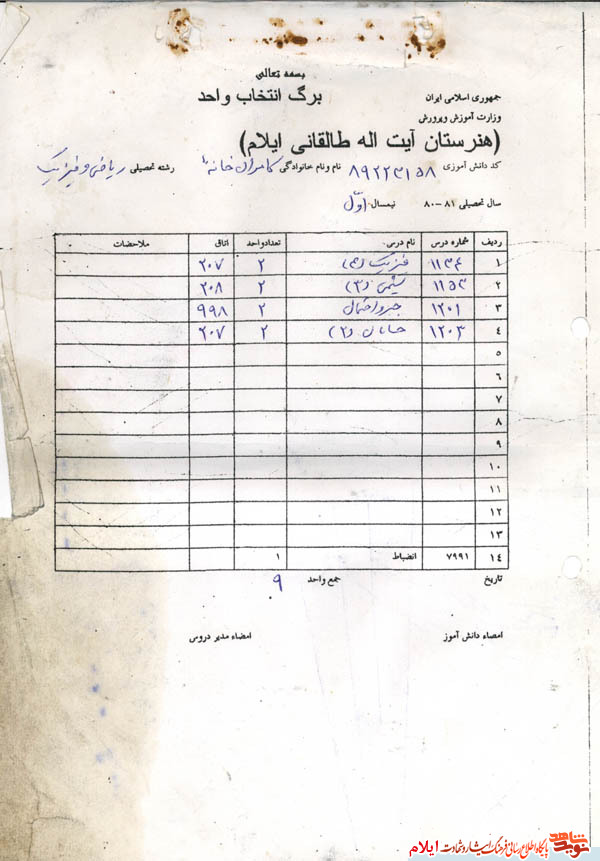 بسمه تعالی
برگ انتخاب واحد
جمهوری اسلامی ایران
وزارت آموزش وپرورش
(هنرستان آیت اله طالقانی ایلام)
کد دانش آموزی ۸۹۲۲۳۱۵۸ نام ونام خانوادگی کامران خانه رشته تحصیلی ریاضی و فیزیک
سال تحصیلی ۸۱ - ۸۰ نیمسال اوّل
ردیف شماره درس نام درس تعدادواحد اتاق ملاحضات
۱ ۱۱۳۴ فیزیک (۳) ۲ ۲۰۷
۲ ۱۱۵۳ شیمی (۳) ۲ ۲۰۸
۳ ۱۲۰۱ جبر و احتمال ۲ ۹۹۸
۴ ۱۲۰۳ حسابان (۲) ۲ ۲۰۷
۵
۶
۷
۸
۹
۱۰
۱۱
۱۲
۱۳
۱۴ ۷۹۹۱ انضباط ۱
تاریخ جمع واحد ۹
امضاء دانش آموز امضاء مدیر دروس
نوید شاهد پایگاه اطلاع رسانی فرهنگ ایثار و شهادت ایلام